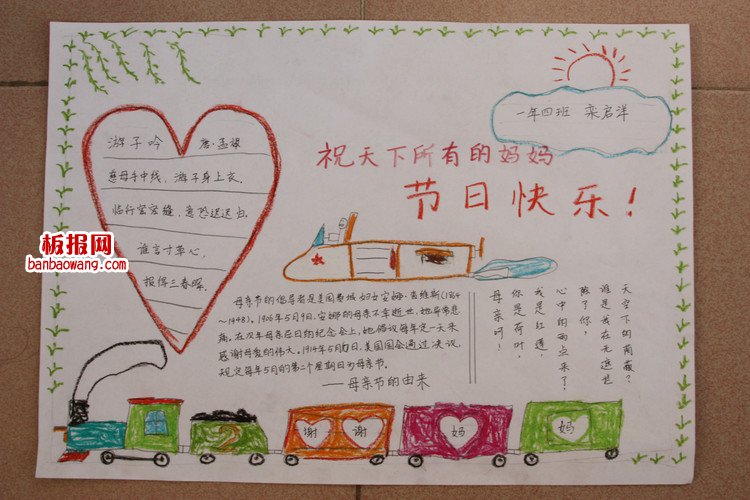 一年四班 栾启洋
祝天下所有的妈妈
节日快乐!
游子吟 唐·孟郊
慈母手中线，游子身上衣。
临行密密缝，意恐迟迟归。
谁言寸草心，
报得三春晖。
板报网
banbaowang.com
母亲节的倡导者是美国费城妇女安娜·查维斯(1864
~1948)。1906年5月9日，安娜的母亲不幸逝世，她非常悲
痛。在次年母亲忌日纪念会上，她倡议每年定一天来
感谢母爱的伟大。1914年5月10日，美国国会通过决议，
规定每年5月的第二个星期日为母亲节。
——母亲节的由来
天空下的荫蔽？
谁是我在无遮拦
除了你，
心中的雨点来了，
我是红莲，
你是荷叶，
母亲呵！
谢 谢 妈 妈